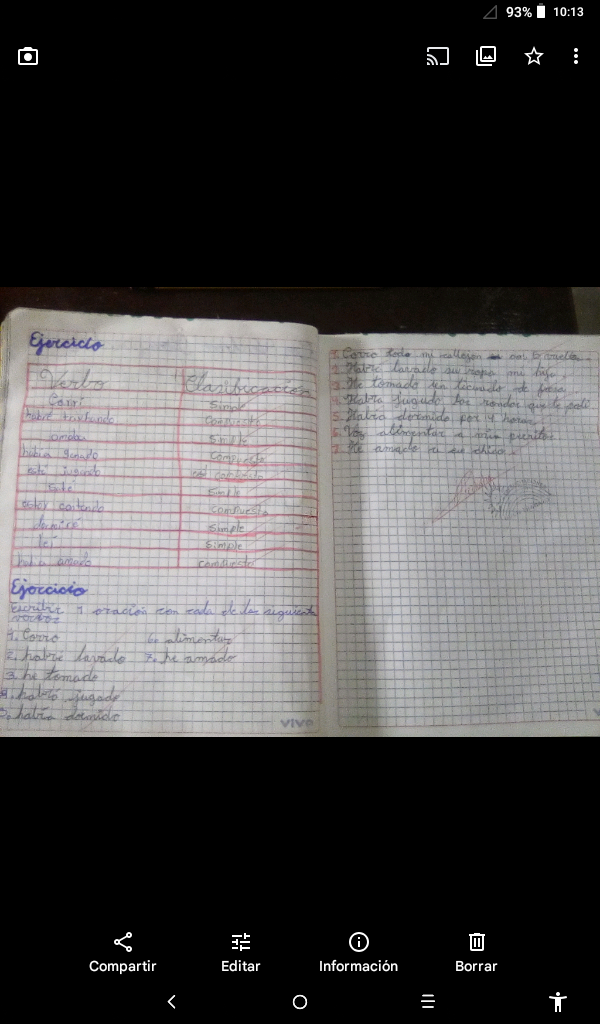 93% 10:13
Ejercicio
Verbo Clasificación
Corrí Simple
habré cantando Compuesto
amaba Simple
había ganado Compuesto
esté jugando Compuesto
Esté Simple
estoy comiendo Compuesto
dormiré Simple
leí Simple
había amado Compuesto
Ejercicio
Escribir 1 oración con cada de las siguiente
verbos
1. Corro 6. alimentar
2. habré lavado 7. he amado
3. he tomado
4. habrá jugado
5. había dormido
vivo
1. Corro todo mi callejon
2. Habré lavado su ropa mi hijo
3. He tomado un licuado de fresa
4. Habrá jugado las rondas que te pedí
5. Había dormido por 4 horas
6. Voy alimentar a mis perritos
7. He amado a su chico
Compartir Editar Información Borrar